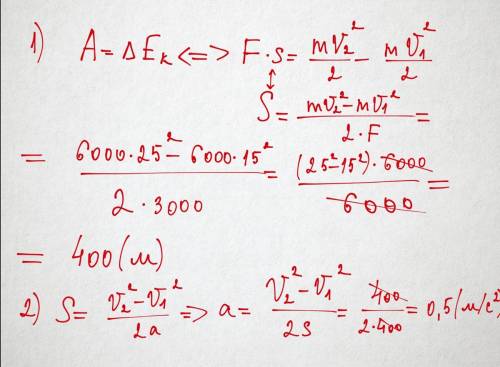 1) A = ΔEₖ <=> F·s = mV₂²/2 - mV₁²/2
↕
S = (mV₂² - mV₁²)/(2·F) =
= (6000·25² - 6000·15²)/(2·3000) = ((25²-15²)·6000)/6000 =
= 400 (м)
2) S = (V₂² - V₁²)/(2a) => a = (V₂² - V₁²)/(2S) = 400/(2·400) = 0,5 (м/с²)